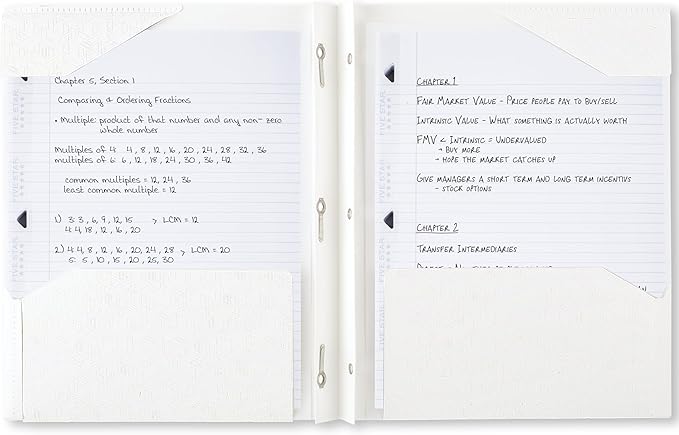 Chapter 5, Section 1
Comparing & Ordering Fractions
• Multiple: product of that number and any non-zero
whole number
Multiples of 4: 4, 8, 12, 16, 20, 24, 28, 32, 36
multiples of 6: 6, 12, 18, 24, 30, 36, 42
common multiples = 12, 24, 36
least common multiple = 12
1) 3: 3, 6, 9, 12, 15 > LCM = 12
4: 4, 18, 12, 16, 20
2) 4: 4, 8, 12, 16, 20, 24, 28 > LCM = 20
5: 5, 10, 15, 20, 25, 30
FIVE STAR
FIVE STAR
CHAPTER 1
FAIR MARKET VALUE - PRICE PEOPLE PAY TO BUY/SELL
INTRINSIC VALUE - WHAT SOMETHING IS ACTUALLY WORTH
FMV < INTRINSIC = UNDERVALUED
→ BUY MORE
→ HOPE THE MARKET CATCHES UP
GIVE MANAGERS A SHORT TERM AND LONG TERM INCENTIVS
- STOCK OPTIONS
CHAPTER 2
TRANSFER INTERMEDIARIES
FIVE STAR
FIVE STAR
FIVE STAR